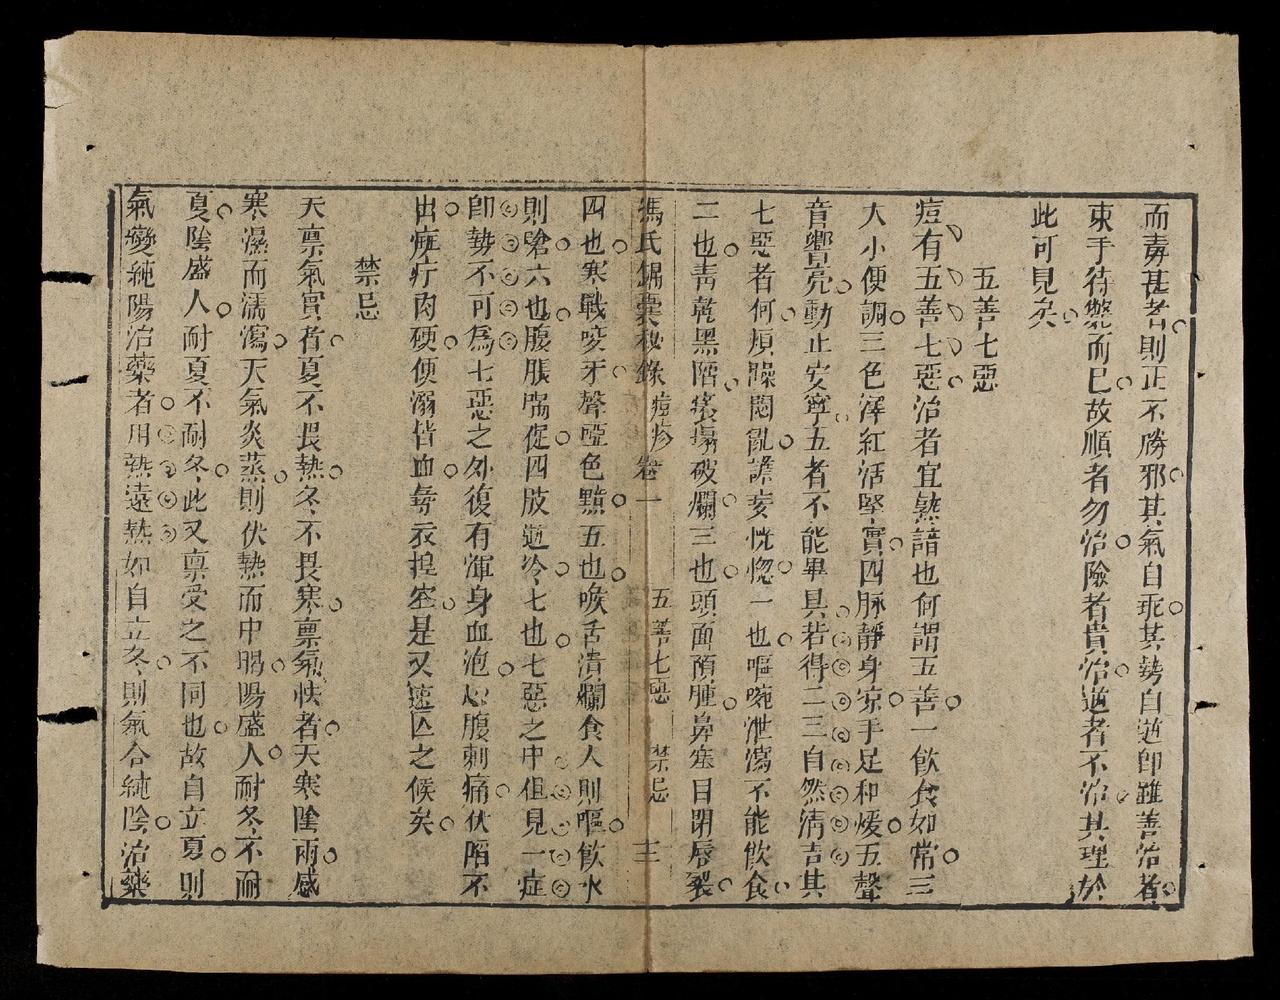 而毒甚者則正不勝邪其氣自乖其勢自逆卽雖善治者
束手待斃而已故順者勿治險者貴治逆者不治其理於
此可見矣
五善七惡
痘有五善七惡治者宜熟諳也何謂五善一飮食如常二
大小便調三色澤紅活堅實四脉靜身凉手足和煖五聲
音響亮動止安寧五者不能畢具若得二三自然淸吉其
七惡者何煩躁悶亂譫妄恍惚一也嘔噦泄瀉不能飮食
二也靑乾黑陷痒塌破爛三也頭面預腫鼻塞目閉唇裂
馮氏錦囊秘錄 痘疹 卷一 五善七惡 禁忌 三
四也寒戰咬牙聲啞色黯五也喉舌潰爛食入則嘔飮水
則嗆六也腹脹喘促四肢逆冷七也七惡之中但見一症
卽勢不可爲七惡之外復有渾身血泡心腹刺痛伏陷不
出痘疔肉硬便溺皆血尋衣捏空是又速亡之候矣
禁忌
天稟氣實者夏不畏熱冬不畏寒稟氣怯者天寒陰雨感
寒濕而濡瀉天氣炎蒸則伏熱而中暍陽盛人耐冬不耐
夏陰盛人耐夏不耐冬此又稟受之不同也故自立夏則
氣變純陽治藥者用熱遠熱如自立冬則氣合純陰治藥